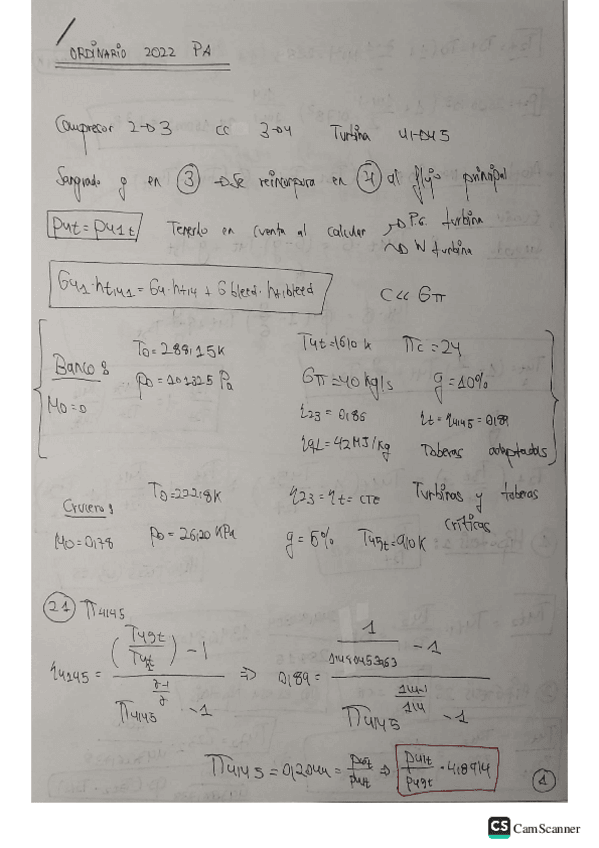 ORDINARIO 2022 PA
Compresor 2→3 CC 3→4 Turbina 41→45
Sangrado g en 3 → Se reincorpora en 4 al flujo principal
P4t = P41t Tenerlo en cuenta al calcular → P.C. turbina
→ W turbina
G41·ht,41 = G4·ht,4 + Gbleed·ht,bleed C << Gπ
Banco: T0 = 288,15 K T4t = 1610 K πc = 24
M0 = 0 P0 = 101325 Pa Gπ = 40 kg/s g = 10%
η23 = 0,86 ηt = η4145 = 0,89
ηqL = 42 MJ/kg Toberas adaptadas
Crucero: T0 = 222,8 K η23 = ηt = CTE Turbinas y toberas críticas
M0 = 0,78 P0 = 26,20 KPa g = 5% T45t = 910 K
21 π4145
η4145 = ((T45t/T41t) - 1)/(π4145^((γ-1)/γ) - 1) ⇒ 0,89 = (1/1,480453263 - 1)/(π4145^((1,4-1)/1,4) - 1)
π4145 = 0,2044 = P45t/P41t ⇒ P41t/P45t = 4,8914
1
CS CamScanner